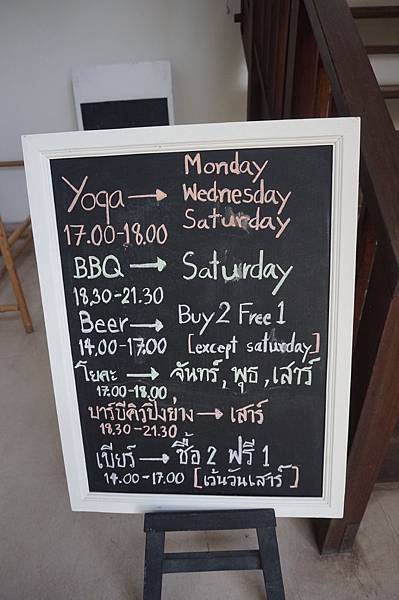 Monday
Yoga → Wednesday
Saturday
17.00-18.00
BBQ → Saturday
18.30-21.30
Beer → Buy 2 Free 1
14.00-17.00 [except saturday]
โยคะ → จันทร์, พุธ, เสาร์
17.00-18.00
บาร์บีคิวปิ้งย่าง → เสาร์
18.30-21.30
เบียร์ → ซื้อ 2 ฟรี 1
14.00-17.00 [เว้นวันเสาร์]